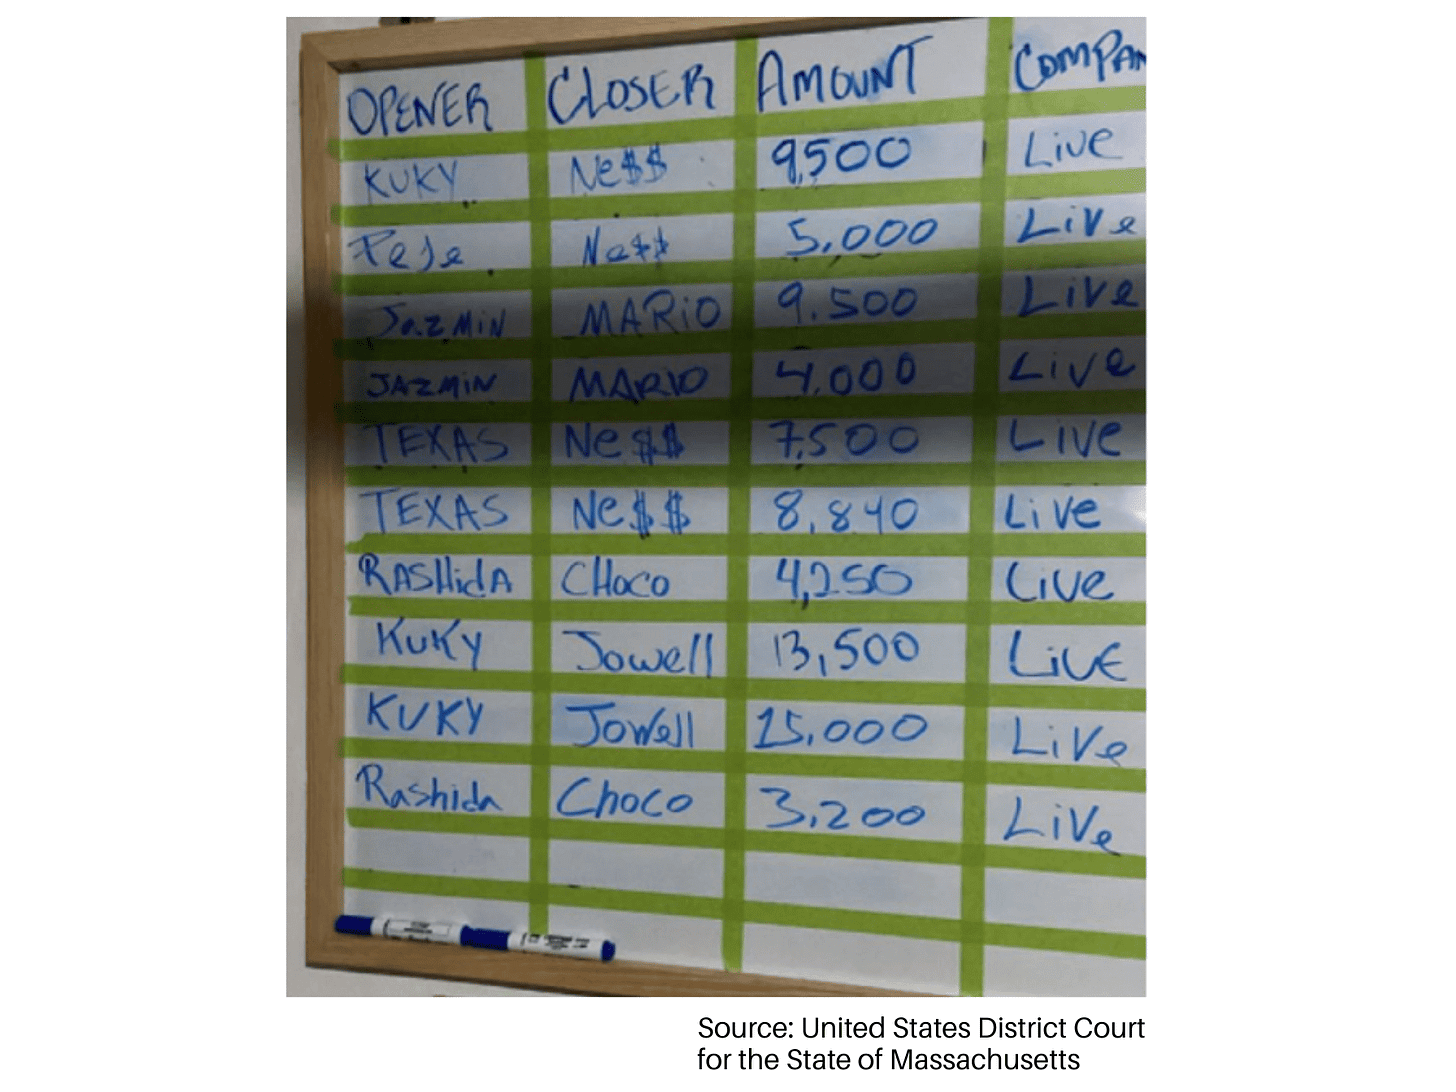 OPENER CLOSER AMOUNT COMPAN
KUKY Ne$$ 9,500 Live
Peje Ne$$ 5,000 Live
JazMiN MARiO 9.500 Live
JAZMiN MARiO 4.000 Live
TEXAS Ne$$ 7,500 Live
TEXAS Ne$$ 8,840 Live
RASHidA CHoco 4,250 Live
KuKy Jowell 13,500 LivE
KUKY JoWell 15,000 LiVe
Rashida Choco 3,200 LiVe
Source: United States District Court
for the State of Massachusetts